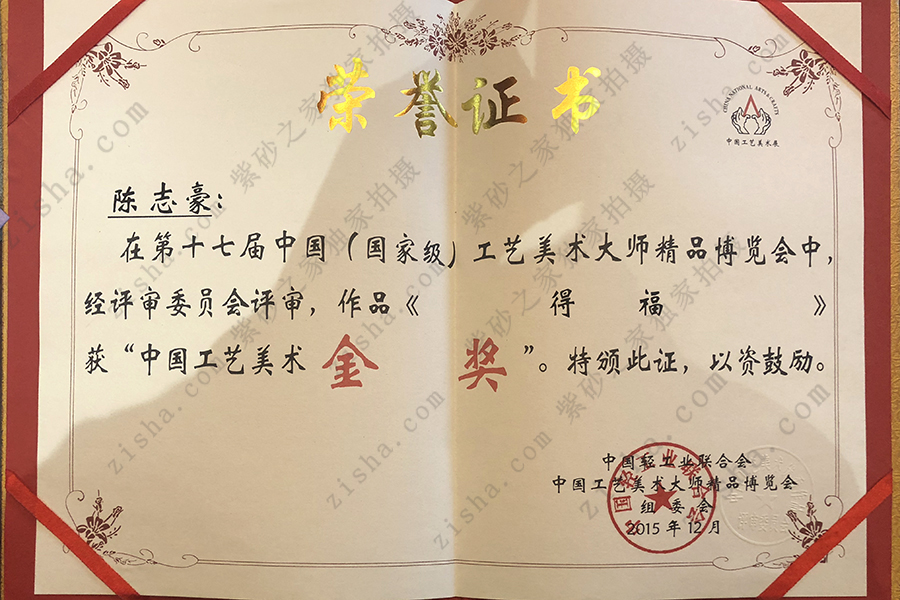 荣誉证书
CHINA NATIONAL ARTS & CRAFTS
中国工艺美术展
陈志豪：
在第十七届中国（国家级）工艺美术大师精品博览会中，
经评审委员会评审，作品《 得 福 》
获“中国工艺美术 金 奖 ”。特颁此证，以资鼓励。
中国轻工业联合会
中国工艺美术大师精品博览会
组 委 会
2015 年 12 月
zisha.com 紫砂之家独家拍摄